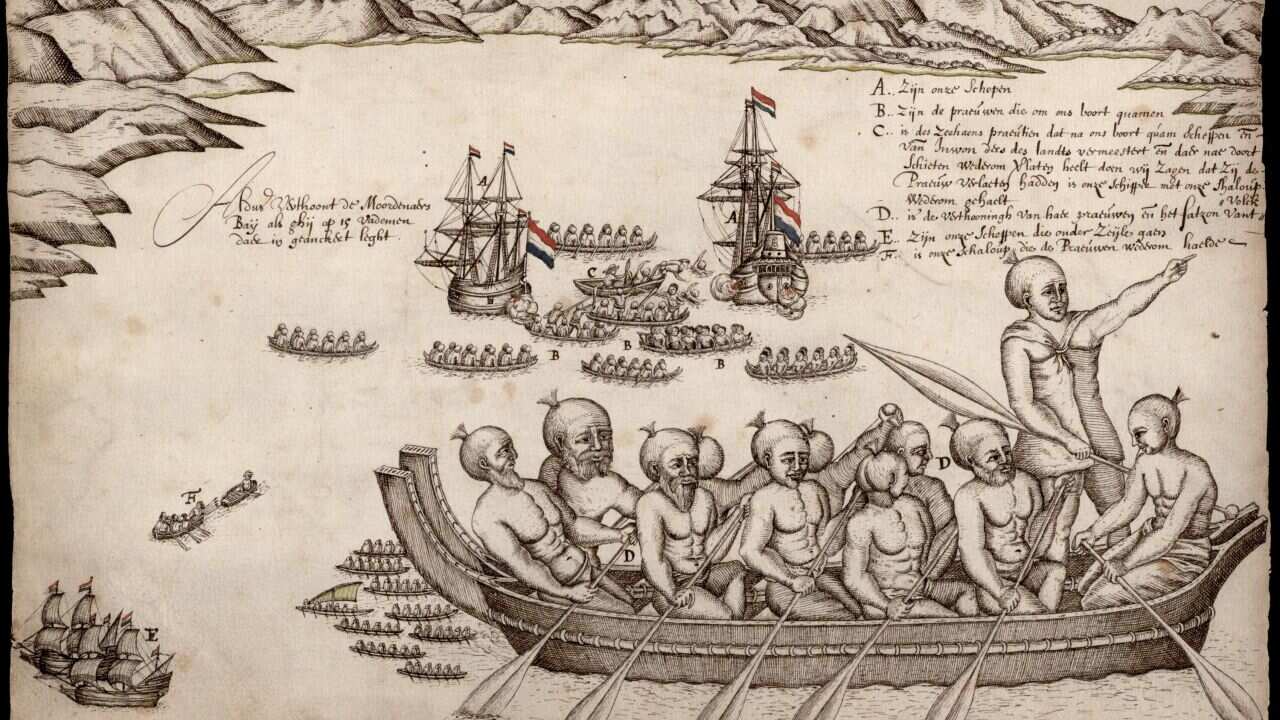 Aldus Verthoont de Moordenaers
Bay als ghij op 15 vademen
daer in geanckert leght
A.. Zijn onze Schepen
B.. Zijn de praeuwen die om ons boort quamen
C.. is des Zeehaens praeutien dat na ons boort quam scheppen en
van Inwon ders des landts vermeestert en daer nae doort
schieten wederom Verlaten heeft doen wij Zagen dat Zij de
Praeuw verlaeten hadden is onze schipper met onze shaloup
wederom gehaelt
D.. is de verthooningh van haer praeuwen en het fatzon van t volck
E. Zijn onze scheepen die onder Zeijle gaen
F.. is onze schaloup die de Praeuwen wederom haelde
A
A
C
B
B
B
D
D
F
E